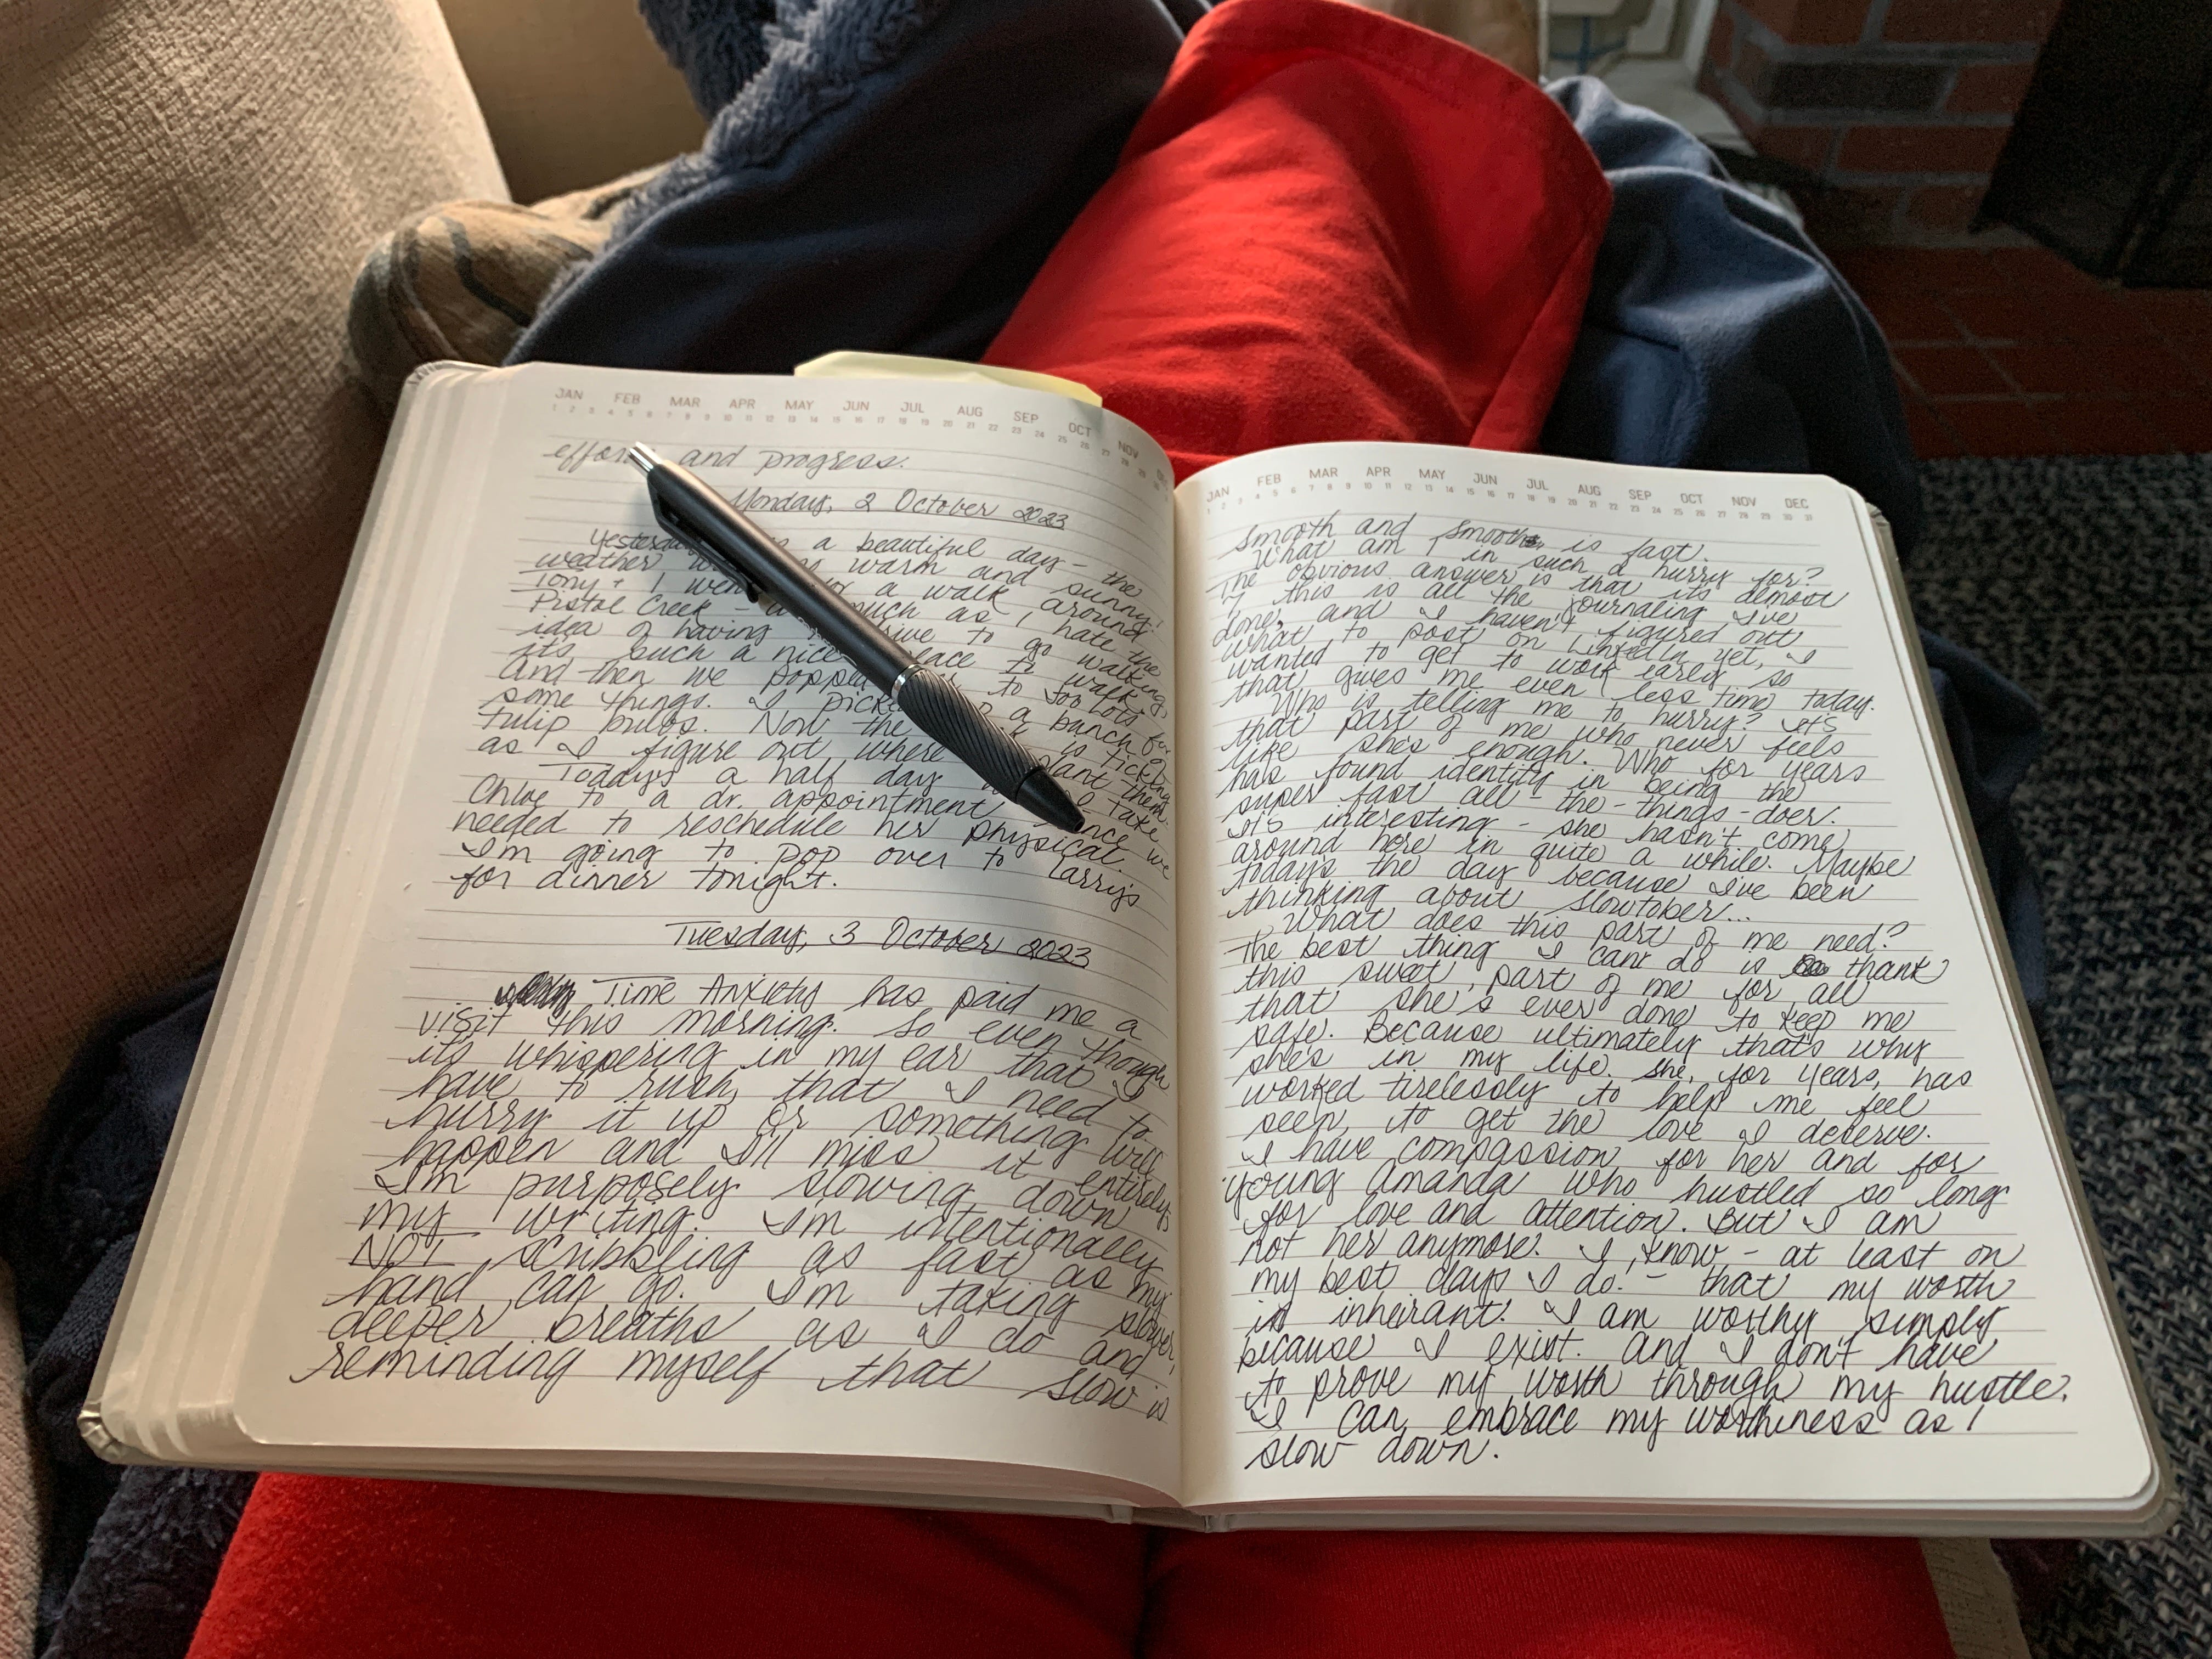 JAN FEB MAR APR MAY JUN JUL AUG SEP OCT NOV
and progress.
Monday, 2 October 2023
a beautiful day - the
weather warm and sunny.
Tony + I a walk around
Pistol Creek - much as I hate the
idea of having to go walking,
its such a nice to walk.
And then we to Joe lots
some things. I a bunch
tulip bulbs. Now the is
as I figure out where them.
Today's a half day take
Chloe to a dr. appointment we
needed to reschedule her physical.
I'm going to pop over to Larry's
for dinner tonight.
Tuesday, 3 October 2023
Time Anxiety has paid me a
visit this morning. So even though
its whispering in my ear that I
have to rush, that I need to
hurry it up or something will
happen and I'll miss it entirely,
I'm purposely slowing down
my writing. I'm intentionally
NOT scribbling as fast as my
hand can go. I'm taking slower,
deeper breaths as I do and
reminding myself that slow is
JAN FEB MAR APR MAY JUN JUL AUG SEP OCT NOV DEC
smooth and smooth is fast.
What am I in such a hurry for?
The obvious answer is that its almost
7, this is all the journaling I've
done, and I haven't figured out
what to post on LinkedIn yet, I
wanted to get to work early so
that gives me even less time today.
Who is telling me to hurry? It's
that part of me who never feels
like she's enough. Who for years
has found identity in being the
super fast all-the-things-doer.
It's interesting - she hasn't come
around here in quite a while. Maybe
today's the day because I've been
thinking about slowtober...
What does this part of me need?
The best thing I can do is thank
this sweet part of me for all
that she's ever done to keep me
safe. Because ultimately that's why
she's in my life. She, for years, has
worked tirelessly to help me feel
seen, to get the love I deserve.
I have compassion for her and for
young Amanda who hustled so long
for love and attention. But I am
not her anymore. I know - at least on
my best days I do - that my worth
is inheirant. I am worthy simply
because I exist. And I don't have
to prove my worth through my hustle.
I can embrace my worthiness as I
slow down.